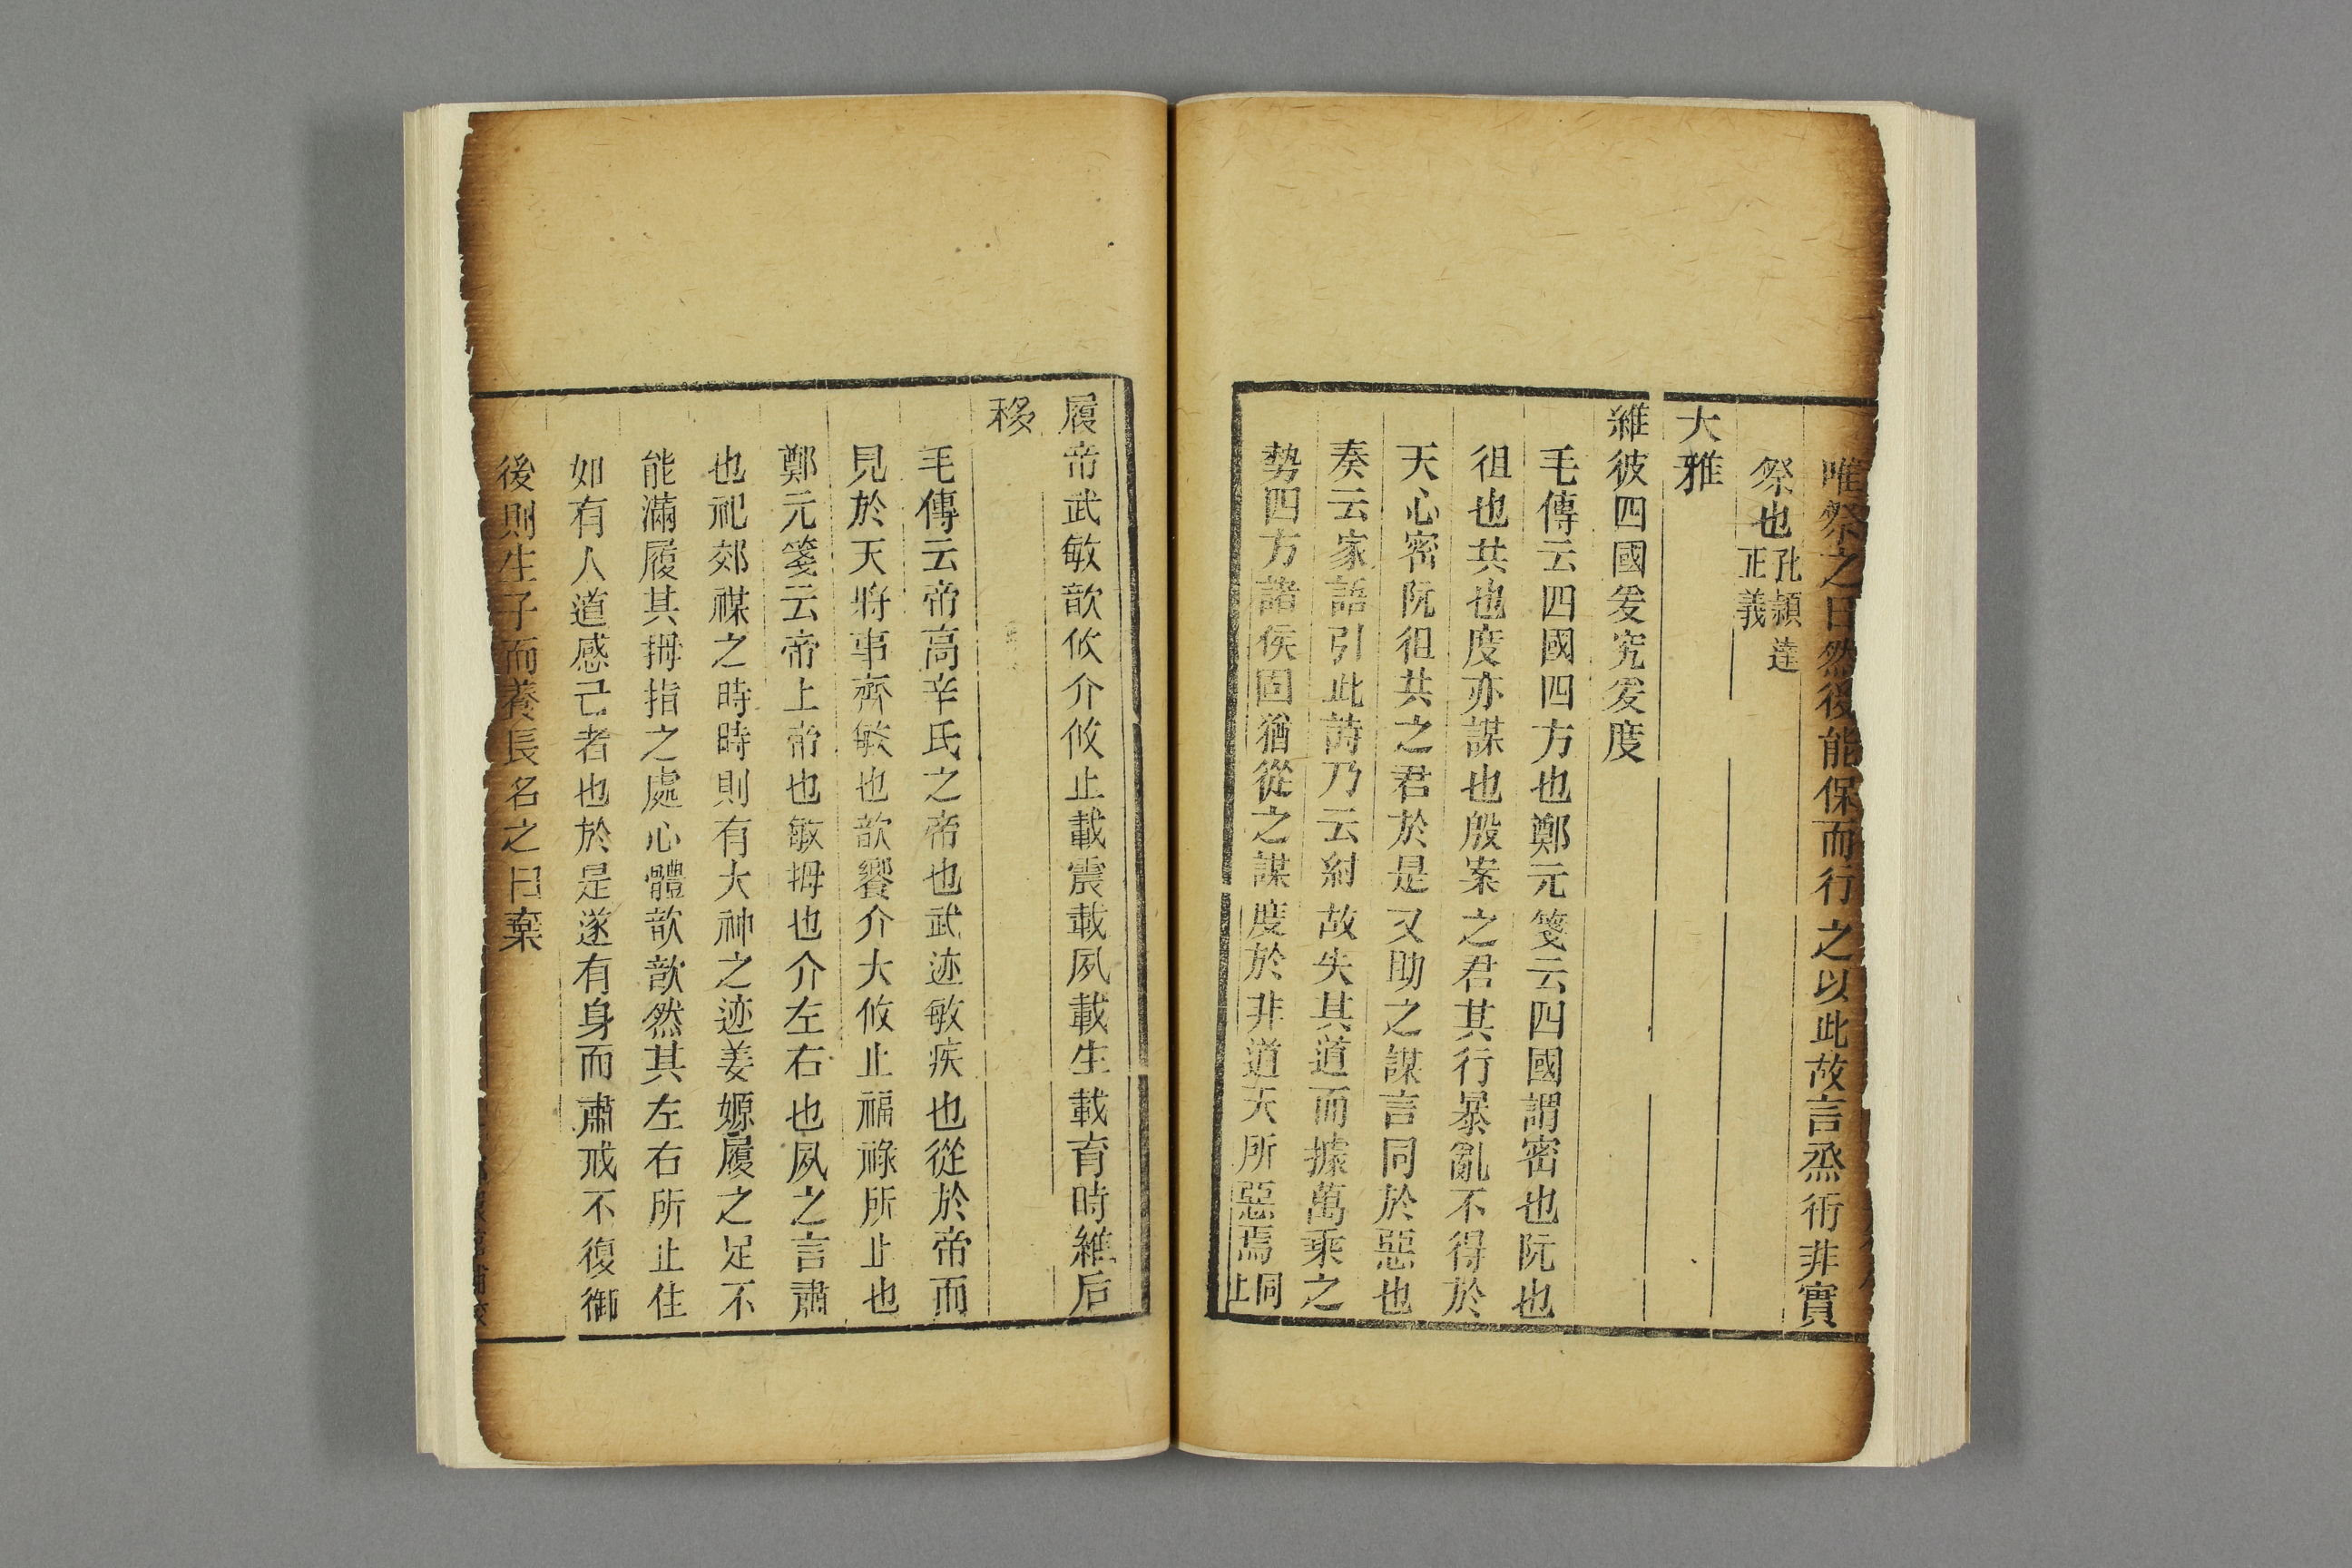 唯祭之日然後能保而行之以此故言烝衎非實
祭也孔頴達正義
大雅
維彼四國爰究爰度
毛傳云四國四方也鄭元箋云四國謂密也阮也
徂也共也度亦謀也殷案之君其行暴亂不得於
天心密阮徂共之君於是又助之謀言同於惡也
奏云家語引此詩乃云紂故失其道而據萬乘之
勢四方諸侯固猶從之謀度於非道天所惡焉同上
履帝武敏歆攸介攸止載震載夙載生載育時維后
稷
毛傳云帝高辛氏之帝也武迹敏疾也從於帝而
見於天將事齊敏也歆饗介大攸止福祿所止也
鄭元箋云帝上帝也敏拇也介左右也夙之言肅
也祀郊禖之時時則有大神之迹姜嫄履之足不
能滿履其拇指之處心體歆歆然其左右所止住
如有人道感己者也於是遂有身而肅戒不復御
後則生子而養長名之曰棄